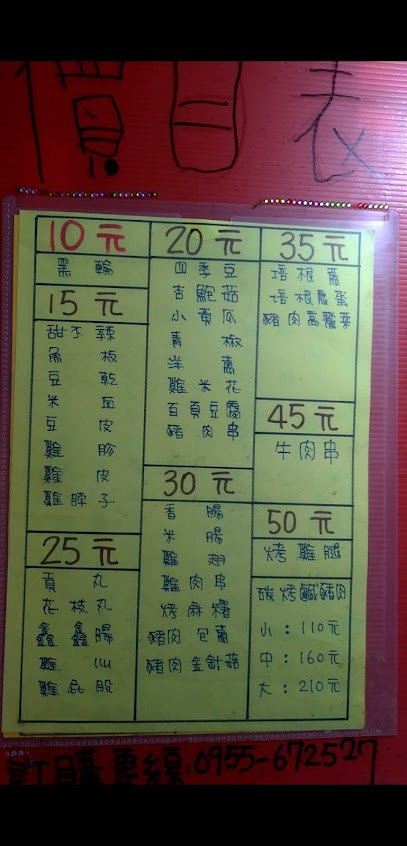 價目表
10元
黑輪
15元
甜不辣
魚板
豆乾
米血
豆皮
雞胗
雞皮
雞脖子
25元
貢丸
花枝丸
鑫鑫腸
雞心
雞屁股
20元
四季豆
杏鮑菇
小黃瓜
青椒
洋蔥
雞米花
百頁豆腐
豬肉串
30元
香腸
米腸
雞翅
雞肉串
烤麻糬
豬肉包蔥
豬肉金針菇
35元
培根蔥
豬肉高麗菜
45元
牛肉串
50元
烤雞腿
碳烤鹹豬肉
小：110元
中：160元
大：210元
訂購專線:0955-672527